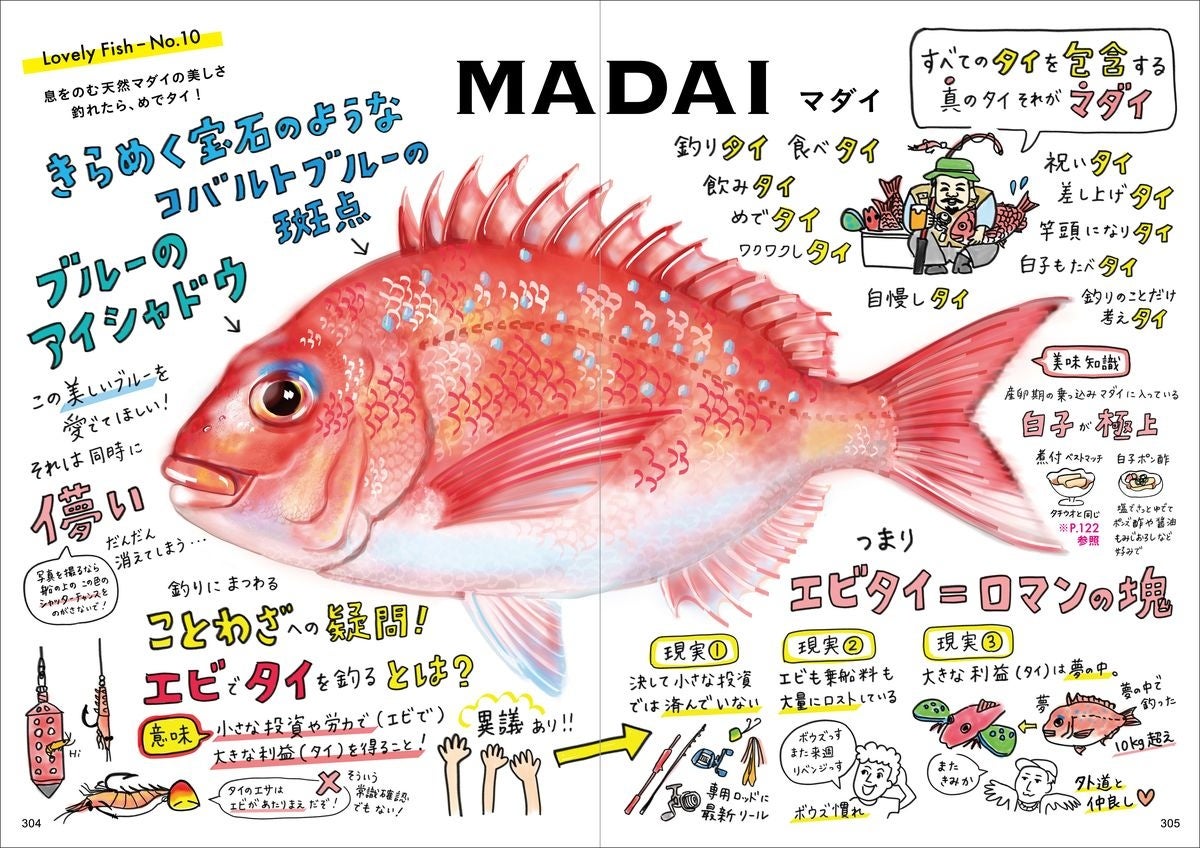 Lovely Fish – No.10
息をのむ天然マダイの美しさ
釣れたら、めでタイ！
MADAI マダイ
すべてのタイを包含する
真のタイそれがマダイ
きらめく宝石のような
コバルトブルーの
斑点
ブルーの
アイシャドウ
この美しいブルーを
愛でてほしい！
それは同時に
儚い
だんだん
消えてしまう…
写真を撮るなら
船の上のこの色の
シャッターチャンスを
のがさないで！
釣りタイ
食べタイ
飲みタイ
めでタイ
ワクワクしタイ
自慢しタイ
祝いタイ
差し上げタイ
竿頭になりタイ
白子もたべタイ
釣りのことだけ
考えタイ
美味知識
産卵期の乗っ込みマダイに入っている
白子が極上
煮付ベストマッチ
タチウオと同じ
※P.122
参照
白子ポン酢
塩でさっとゆでて
ポン酢や醤油
もみじおろしなど
好みで
釣りにまつわる
ことわざへの疑問！
エビでタイを釣るとは？
意味
小さな投資や労力で（エビで）
大きな利益（タイ）を得ること！
Hi
タイのエサは
エビがあたりまえだぞ！
そういう
常識確認
でもない！
異議あり!!
つまり
エビタイ＝ロマンの塊
現実①
決して小さな投資
では済んでいない
専用ロッドに
最新リール
現実②
エビも乗船料も
大量にロストしている
ボウズっす
また来週
リベンジっす
ボウズ慣れ
現実③
大きな利益（タイ）は夢の中。
夢
夢の中で
釣った
10kg超え
また
きみか
外道と
仲良し
304
305